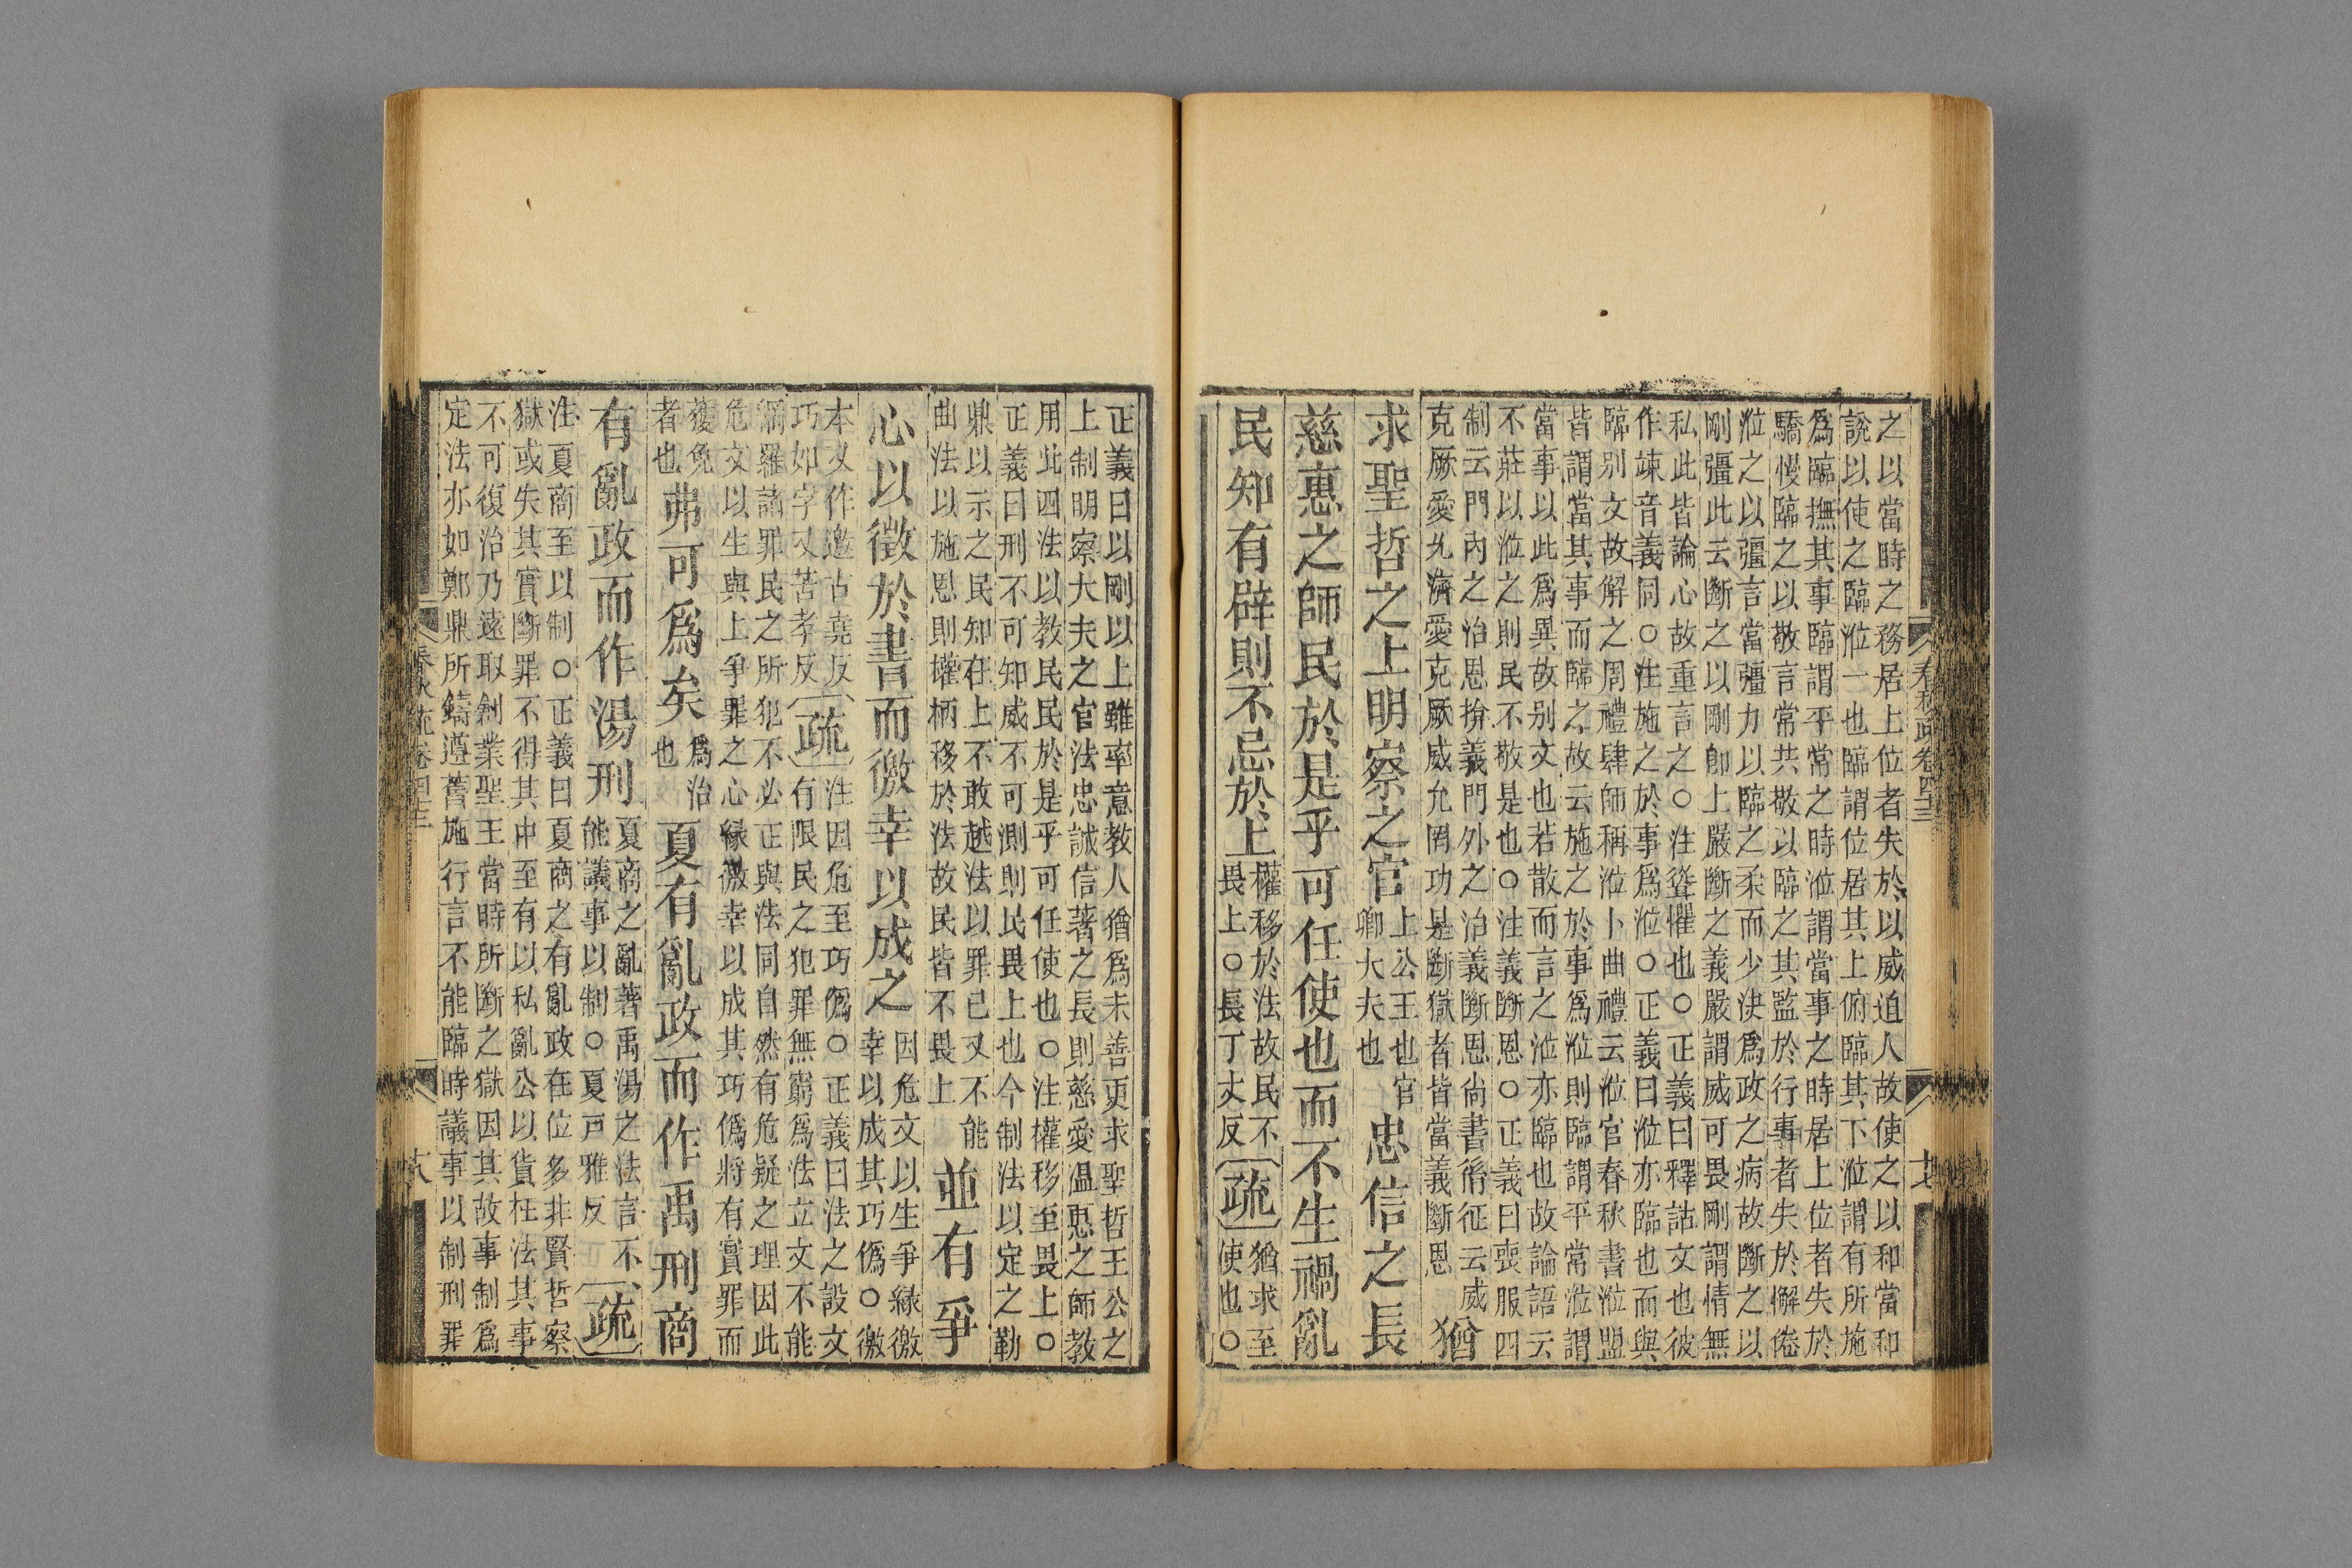 春秋疏卷四十三
十七
之以當時之務居上位者失於以威迫人故使之以和當和
說以使之臨涖一也臨謂位居其上俯臨其下涖謂有所施
爲臨撫其事臨謂平常之時涖謂當事之時居上位者失於
驕慢臨之以敬言常共敬以臨之其監於行事者失於懈倦
涖之以彊言當彊力以臨之柔而少決爲政之病故斷之以
剛彊此云斷之以剛卽上嚴斷之義嚴謂威可畏剛謂情無
私此皆論心故重言之○注聳懼也○正義曰釋詁文也彼
作竦音義同○注施之於事爲涖○正義曰涖亦臨也而與
臨别文故解之周禮肆師稱涖卜曲禮云涖官春秋書涖盟
皆謂當其事而臨之故云施之於事爲涖則臨謂平常涖謂
當事以此爲異故别文也若散而言之涖亦臨也故論語云
不莊以涖之則民不敬是也○注義斷恩○正義曰喪服四
制云門內之治恩揜義門外之治義斷恩尚書胤征云威
克厥愛允濟愛克厥威允罔功是斷獄者皆當義斷恩猶
求聖哲之上明察之官上公王也官卿大夫也忠信之長
慈惠之師民於是乎可任使也而不生禍亂
民知有辟則不忌於上權移於法故民不畏上○長丁丈反疏猶求至使也○
正義曰以剛以上雖率意教人猶爲未善更求聖哲王公之
上制明察大夫之官法忠誠信著之長則慈愛溫惠之師教
用此四法以教民民於是乎可任使也○注權移至畏上○
正義曰刑不可知威不可測則民畏上也今制法以定之勒
鼎以示之民知在上不敢越法以罪己又不能
曲法以施恩則權柄移於法故民皆不畏上並有爭
心以徵於書而徼幸以成之因危文以生爭緣徼幸以成其巧僞○徼
本又作邀古堯反巧如字又苦孝反疏注因危至巧僞○正義曰法之設文有限民之犯罪無窮爲法立文不能
網羅諸罪民之所犯不必正與法同自然有危疑之理因此
危文以生與上爭罪之心緣徼幸以成其巧僞將有實罪而
獲免者也弗可爲矣爲治也夏有亂政而作禹刑商
有亂政而作湯刑夏商之亂著禹湯之法言不能議事以制○夏戸雅反疏
注夏商至以制○正義曰夏商之有亂政在位多非賢哲察
獄或失其實斷罪不得其中至有以私亂公以貨枉法其事
不可復治乃遠取創業聖王當時所斷之獄因其故事制爲
定法亦如鄭鼎所鑄遵舊施行言不能臨時議事以制刑罪
春秋疏卷四十三
十八